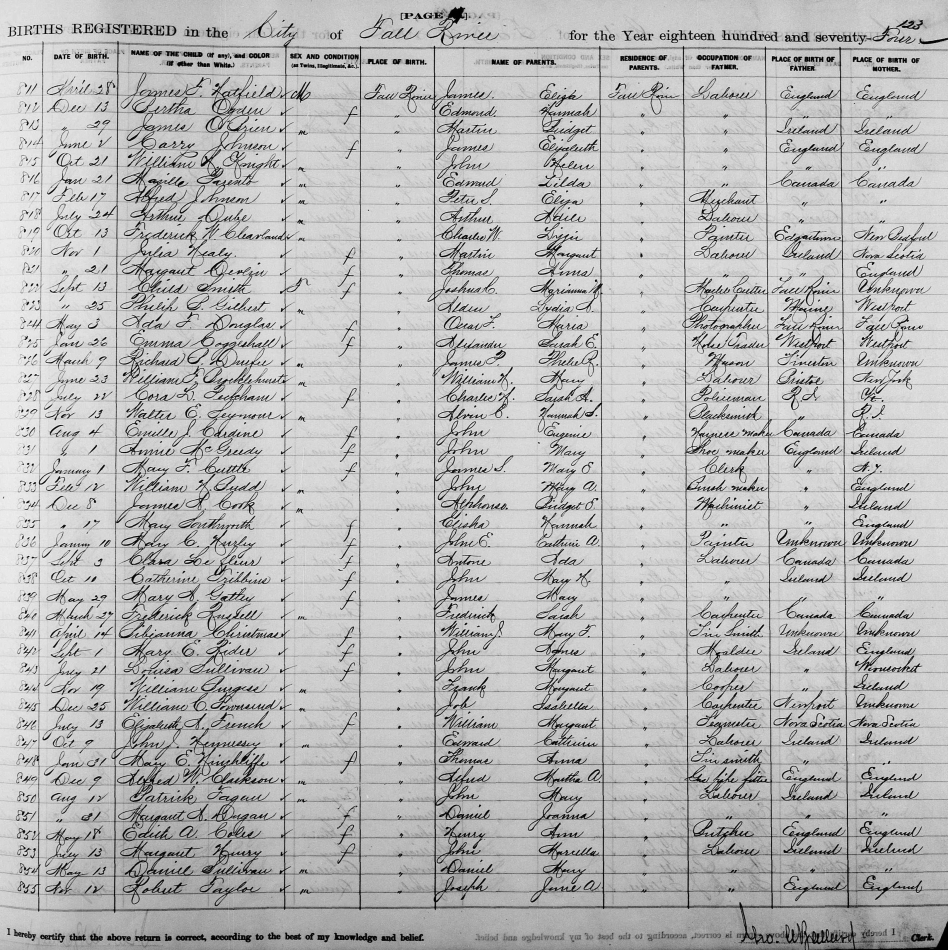 [PAGE 4.]
123
BIRTHS REGISTERED in the City of Fall River for the Year eighteen hundred and seventy-Four
NO. DATE OF BIRTH. NAME OF THE CHILD (if any), and COLOR (if other than White). SEX AND CONDITION (as Twins, Illegitimate, &c.) PLACE OF BIRTH. NAME OF PARENTS. RESIDENCE OF PARENTS. OCCUPATION OF FATHER. PLACE OF BIRTH OF FATHER. PLACE OF BIRTH OF MOTHER.
811 April 28 James F. Hatfield M Fall River James Eliza Fall River Laborer England England
812 Dec 13 Bertha Ogden f " Edmond Hannah " " " "
813 " 29 James O'Brien m " Martin Bridget " " Ireland Ireland
814 June 2 Carry Johnson f " James Elizabeth " " England England
815 Oct 21 William H. Knight m " John Helen " " " "
816 Jan 21 m " Edmud " " Canada Canada
817 Feb 17 Alfred Johnson m " Peter S. Eliza " Merchant " "
818 July 24 Arthur Dube m " Arthur Adile " Laborer " "
819 Oct 13 Frederick W. Cleaveland m " Charles W. Lizzie " Painter Edgartown New Bedford
820 Nov 1 Julia Healy f " Martin Margaret " Laborer Ireland Nova Scotia
821 " 21 Margaret Devlin f " Thomas Anna " " " England
822 Sept 13 Child Smith f " Joshua C. " Fall River Unknown
823 " 25 Philip S. Gilbert m " Alden Lydia S. " Carpenter Maine Westport
824 May 3 Ada F. Douglas f " Oscar F. Maria " Photographer Fall River Fall River
825 Jan 26 Emma Coggeshall f " Alexander Sarah E. " Horse Trader Westport Westport
826 March 9 Richard P. Durfee m " James P. Phebe R. " Mason Tiverton Unknown
827 June 23 William E. Brocklehurst m " William H. Mary " Laborer Bristol New York
828 July 22 Cora L. Peckham f " Charles H. Sarah A. " Policeman R.I. Ct.
829 Nov 13 Walter E. Seymour m " Alvin E. Hannah S. " Blacksmith " R.I.
830 Aug 4 J. Cardine f " John Eugenie " Harness maker Canada Canada
831 " 1 Annie McGreedy f " John Mary " Shoe maker England Ireland
832 January 1 Mary F. Cuttle f " James S. Mary E " Clerk " N.Y.
833 Feb 12 William H. Budd m " John Mary A. " Brush maker " England
834 Dec 8 James A. Cook m " Alphonso Bridget E. " Machinist " Ireland
835 " 17 Mary f " Elisha Hannah " " " England
836 January 10 Mary C. Hurley f " John E. Cathrine A. " Painter Unknown Unknown
837 Sept 3 Clara Le Fleur f " Antone Ada " Laborer Canada Canada
838 Oct 10 Catherine Gribbins f " John Mary H. " " Ireland Ireland
839 May 29 Mary A. Gatley f " James Mary " " " "
840 March 27 Frederick Russell m " Frederick Sarah " Carpenter Canada Canada
841 April 14 Christmas f " William J. Mary F. " Tin Smith Unknown Unknown
842 Sept 1 Mary E. Rider f " John Agnes " Moulder Ireland England
843 July 21 Louisa Sullivan f " John Margaret " Laborer " Woonsocket
844 Nov 19 William Burgess m " Frank Margaret " Cooper " Ireland
845 Dec 25 William C. Townsend m " Job Isabella " Carpenter Newport Unknown
846 July 13 Elizabeth A. French f " William Margaret " Teamster Nova Scotia Nova Scotia
847 Oct 9 John J. Hennessey m " Edward Cathrine " Laborer Ireland Ireland
848 Jan 31 Mary E. Hinchliffe f " Thomas Anna " Tin smith " "
849 Dec 9 Alfred W. Clarkson m " Alfred Martha A. " Gas pipe fitter England England
850 Aug 12 Patrick Fagan m " John Mary " Laborer Ireland Ireland
851 " 31 Margaret A. Dugan f " Daniel Joanna " " " "
852 May 18 Edith A. Coles f " Henry Ann " Butcher England England
853 July 13 Margaret Henry f " John Marcella " Laborer Ireland Ireland
854 May 13 Daniel Sullivan m " Daniel Mary " " " "
855 Nov 12 Robert Taylor m " Joseph Jane A. " " England England
I hereby certify that the above return is correct, according to the best of my knowledge and belief.
Clerk.